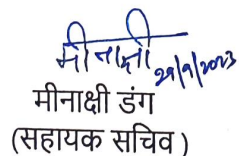 मीनाक्षी
29/9/2023
मीनाक्षी डंग
(सहायक सचिव)